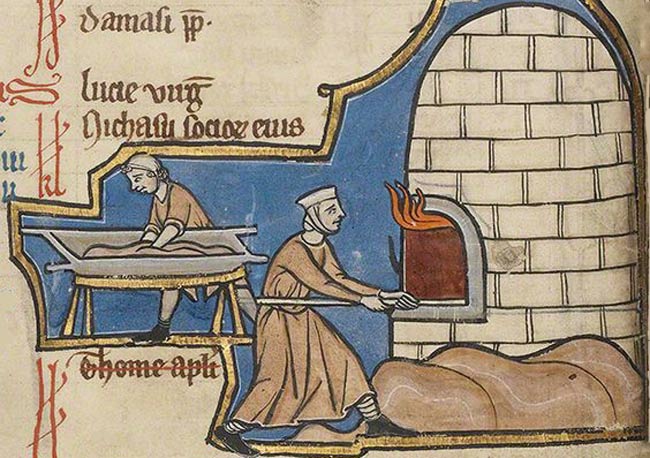 Damasi pp̄.
lucie uirḡ
Nichasii socioꝝ eius
Thome apl̄i